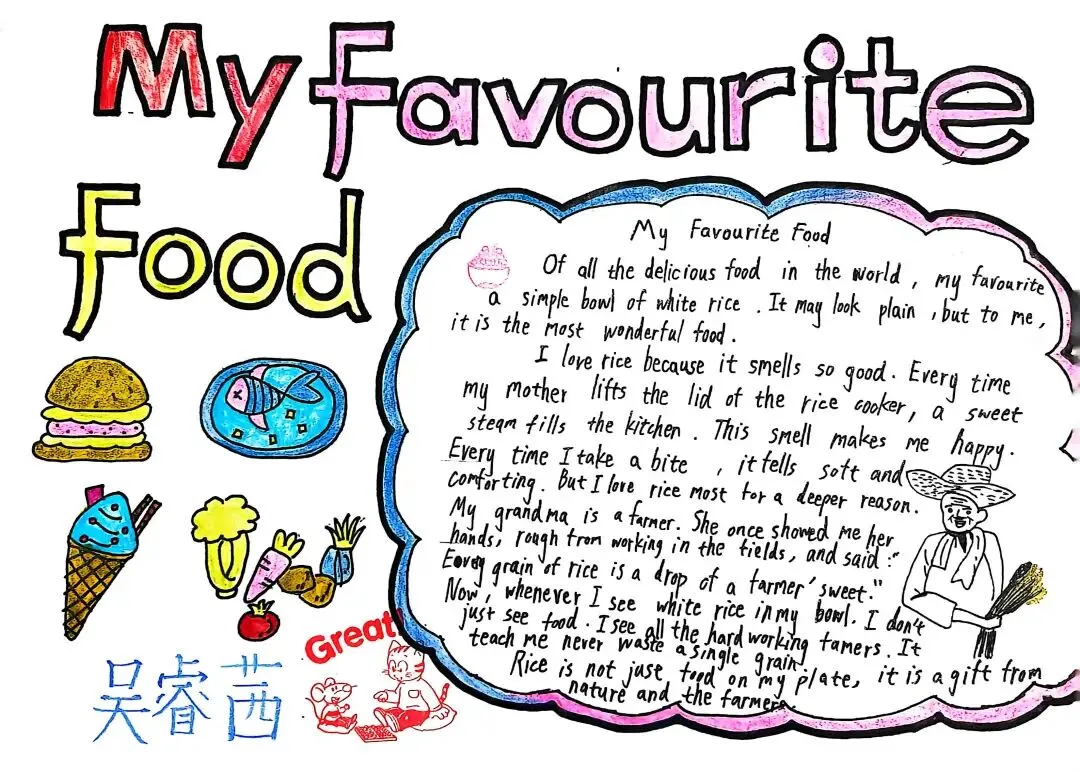 My Favourite
Food
My Favourite Food
Of all the delicious food in the world, my favourite
a simple bowl of white rice. It may look plain, but to me,
it is the most wonderful food.
I love rice because it smells so good. Every time
my mother lifts the lid of the rice cooker, a sweet
steam fills the kitchen. This smell makes me happy.
Every time I take a bite, it fells soft and
comforting. But I love rice most for a deeper reason.
My grandma is a farmer. She once showed me her
hands, rough from working in the fields, and said:"
Eovey grain of rice is a drop of a farmer' sweet."
Now, whenever I see white rice in my bowl. I don't
just see food. I see all the hard working famers. It
teach me never waste a single grain.
Rice is not just food on my plate, it is a gift from
nature and the farmers
吴睿茜
Great!